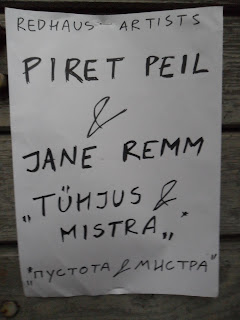 REDHAUS ARTISTS
PIRET PEIL
&
JANE REMM
„TÜHJUS &
MISTRA„*
"*ПУСТОТА & МИСТРА"